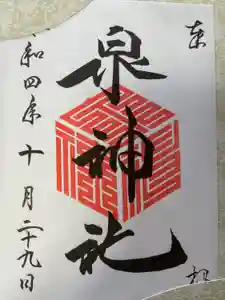 奉拝
泉神社
令和四年十月二十九日